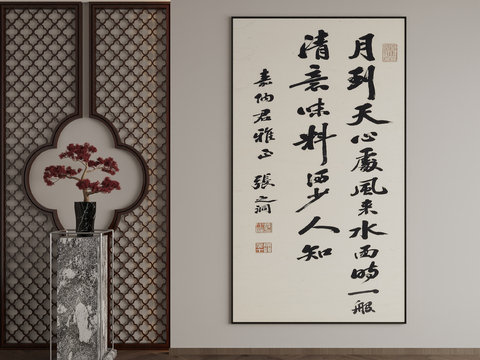 月到天心處風来水面時一般
清意味料得少人知
嘉納君雅正 張之洞